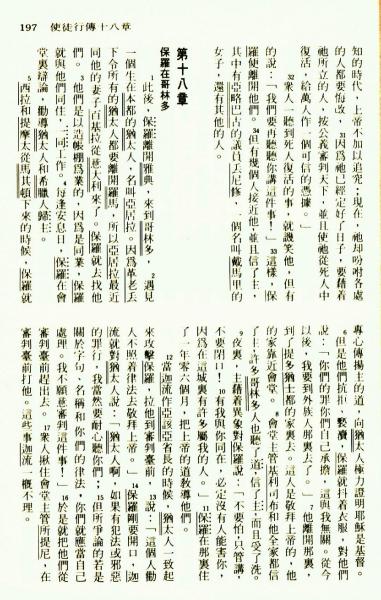 197　使徒行傳十八章
知的時代，上帝不加以追究；現在，祂却吩咐各處
的人都要悔改。31因爲祂已經定了日子，要藉着
祂所立的人，按公義審判天下，並且使祂從死人中
復活，給萬人作一個可信的憑據。」
32衆人一聽到死人復活的事，就譏笑他，但有
的說：「我們要再聽聽你講這件事！」33這樣，保
羅便離開他們。34但有幾個人接近他，並且信了主，
其中有亞略巴古的議員丟尼修，一個名叫戴馬里的
女子，還有其他的人。
第十八章
保羅在哥林多
1此後，保羅離開雅典，來到哥林多，2遇見
一個生在本都的猶太人，名叫亞居拉。因爲革老丟
下令所有的猶太人都要離開羅馬，所以亞居拉最近
同他的妻子百基拉從意大利來了。保羅就去找他
們。3他們是以造帳棚爲業的，因爲是同業，保羅
就與他們同住，一同工作。4每逢安息日，保羅在會
堂裏辯論，勸導猶太人和希臘人歸主。
5西拉和提摩太從馬其頓下來的時候，保羅就
專心傳揚主的道，向猶太人極力證明耶穌是基督。
6但是他們抗拒、褻瀆，保羅就抖着衣服，對他們
說：「你們的罪你們自己承擔，這與我無關。從今
以後，我要到外族人那裏去了。」7他離開那裏，
到了提多猶士都的家裏去。這人是敬拜上帝的，他
的家靠近會堂。8會堂主管基利司布和他全家都信
了主；許多哥林多人也聽了道，信了主，而且受了洗。
9夜裏，主藉着異象對保羅說：「不要怕，只管講，
不要閉口！10有我與你同在，必定沒有人能害你，
因爲在這城裏有許多屬我的人。」11保羅在那裏住
了一年零六個月，把上帝的道敎導他們。
12當迦流作亞該亞省長的時候，猶太人一致起
來攻擊保羅，拉他到審判臺前，13說：「這個人勸
人不照着律法去敬拜上帝。」14保羅剛要開口，迦
流就對猶太人說：「猶太人啊，如果有犯法或邪惡
的罪行，我當然要耐心聽你們；15但所爭論的若是
關於字句、名稱和你們的律法，你們就應當自己
處理。我不願意審判這件事！」16於是就把他們從
審判臺前趕出去。17衆人揪住會堂主管所提尼，在
審判臺前打他。這些事迦流一概不理。